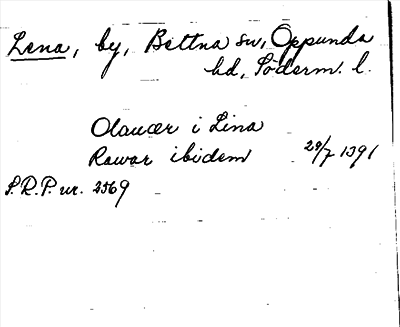 Lena, by, Bettna sn, Oppunda
hd, Söderm. l.
Olauær i Lina
Rawar ibidem 29/7 1391
S.R.P. nr. 2569